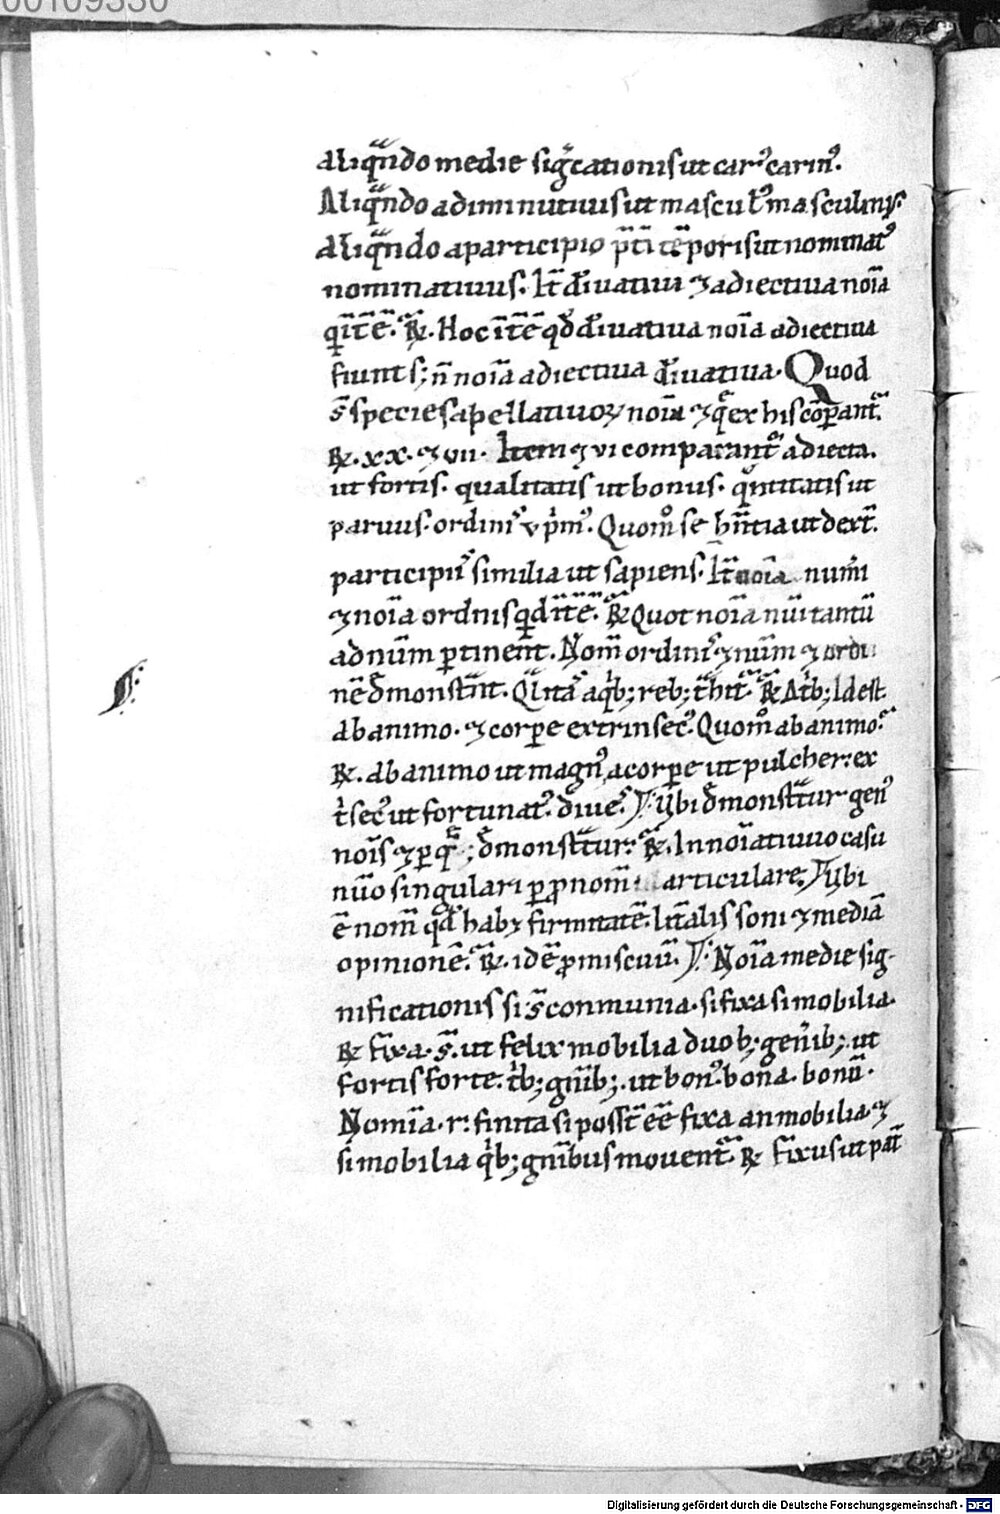 00109330
aliqn̄do medie sig̅cationis ut car᷒ carin᷒.
Aliqn̄do adiminutiuis ut mascul᷒ masculin᷒.
aliqn̄do aparticipio p̄ti tēporis ut nominat᷒
nominatiuus. It̄ d̅iuatiua ⁊ adiectiua noīa
q̄ it̄ ē. R̄. Hoc īt̄ ē qd̄ d̅iuatiua noīa adiectiua
fiunt s; n̄ noīa adiectiua d̅iuatiua. Quod
s̄ species apellatiuoꝝ noīa ⁊ q̄ ex his cōparant̄.
R̄. xx. ⁊ vii. Item ⁊ vi comparant̄ adiecta.
ut fortis. qualitatis ut bonus. qn̄titatis ut
paruus. ordinis᷒ ut p̄m᷒. Quom̊ se hn̄tia ut dext̄.
participii᷒ similia ut sapiens. It̄ noīa num̄i
⁊ noīa ordnis qd̄ it̄ ē. R̄ Quot noīa nūi tantū
ad nūm ꝑtinent̄. Nom̄ ordinis᷒ ⁊ nūm ⁊ ordi
nē d̄monst̄nt. Qlitas᷒ aqb; reb; t̄hit᷒. R̄ A tb; Id est
ab animo. ⁊ corpe extrinsec᷒. Quom̊ ab animo.
R̄. ab animo ut magn᷒ a corpe ut pulcher. ex
t̄sec᷒ ut fortunat᷒. diues᷒. ubi d̄monst̄tur gen᷒
noīs ⁊ ꝑ q̄ d̄monst̄tur. R̄. In noīatiuuo casu
nūo singulari ꝑ pnom̄ articulare. ubi
ē nom̄ qd̄ habꝫ firmitatē. lit̄alis soni ⁊ mediā
opinionē. R̄. idē pmiscuū. Noīa medie sig-
nificationis si s̄ conmunia. si fixa si mobilia.
R̄ fixa. s̄. ut felix mobilia duob; gen̄ib;. ut
fortis forte. t̄b; gn̄ib;. ut bon᷒. bona. bonū.
Nomīa. r. finita si poss̄t eē fixa an mobilia ⁊
si mobilia q̄b; gn̄ibus mouent̄. R̄ fixus ut pat̄
Digitalisierung gefördert durch die Deutsche Forschungsgemeinschaft - DFG